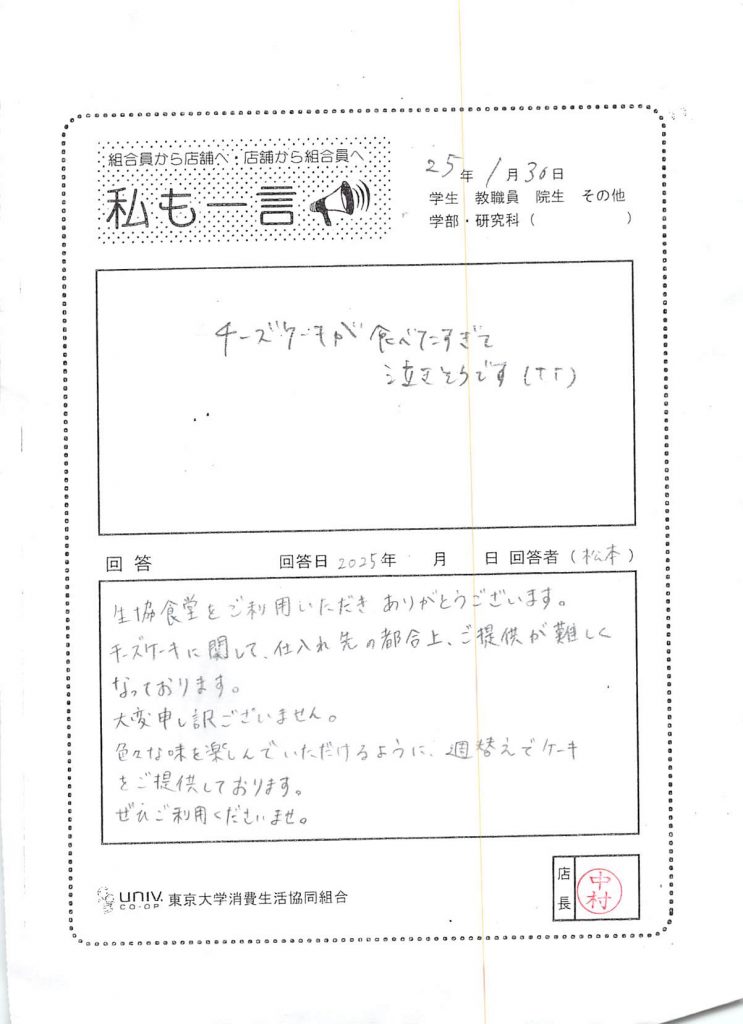 組合員から店舗へ・店舗から組合員へ
私も一言
25年 1月30日
学生 教職員 院生 その他
学部・研究科( )
チーズケーキが食べたすぎて
泣きそうです(TT)
回答 回答日 2025年 月 日 回答者(松本)
生協食堂をご利用いただきありがとうございます。
チーズケーキに関して、仕入れ先の都合上、ご提供が難しく
なっております。
大変申し訳ございません。
色々な味を楽しんでいただけるように、週替えでケーキ
をご提供しております。
ぜひご利用くださいませ。
UNIV.
CO-OP
東京大学消費生活協同組合
店長
中村